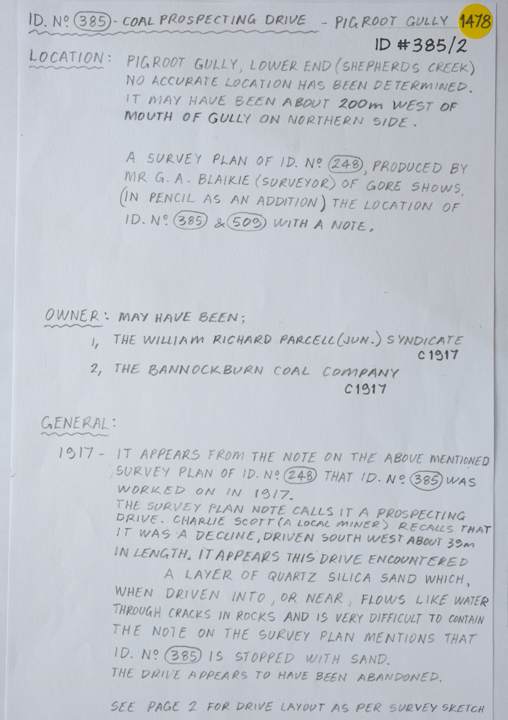 ID. Nº 385 - COAL PROSPECTING DRIVE - PIGROOT GULLY 1478
ID #385/2
LOCATION: PIGROOT GULLY, LOWER END (SHEPHERDS CREEK)
NO ACCURATE LOCATION HAS BEEN DETERMINED.
IT MAY HAVE BEEN ABOUT 200m WEST OF
MOUTH OF GULLY ON NORTHERN SIDE.
A SURVEY PLAN OF ID. Nº 248, PRODUCED BY
MR G. A. BLAIKIE (SURVEYOR) OF GORE SHOWS,
(IN PENCIL AS AN ADDITION) THE LOCATION OF
ID. Nº 385 & 509 WITH A NOTE.
OWNER: MAY HAVE BEEN;
1, THE WILLIAM RICHARD PARCELL (JUN.) SYNDICATE
C1917
2, THE BANNOCKBURN COAL COMPANY
C1917
GENERAL:
1917 - IT APPEARS FROM THE NOTE ON THE ABOVE MENTIONED
SURVEY PLAN OF ID. Nº 248 THAT ID. Nº 385 WAS
WORKED ON IN 1917.
THE SURVEY PLAN NOTE CALLS IT A PROSPECTING
DRIVE. CHARLIE SCOTT (A LOCAL MINER) RECALLS THAT
IT WAS A DECLINE, DRIVEN SOUTH WEST ABOUT 39m
IN LENGTH. IT APPEARS THIS DRIVE ENCOUNTERED
A LAYER OF QUARTZ SILICA SAND WHICH,
WHEN DRIVEN INTO, OR NEAR, FLOWS LIKE WATER
THROUGH CRACKS IN ROCKS AND IS VERY DIFFICULT TO CONTAIN
THE NOTE ON THE SURVEY PLAN MENTIONS THAT
ID. Nº 385 IS STOPPED WITH SAND.
THE DRIVE APPEARS TO HAVE BEEN ABANDONED.
SEE PAGE 2 FOR DRIVE LAYOUT AS PER SURVEY SKETCH